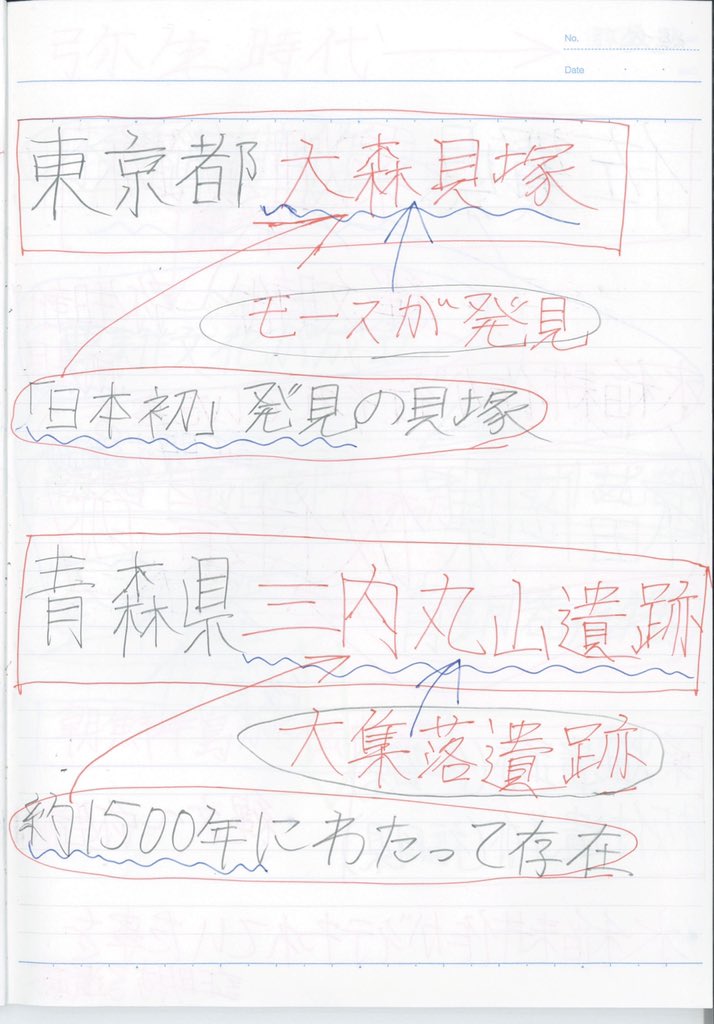 No.
Date
東京都大森貝塚
モースが発見
「日本初」発見の貝塚
青森県三内丸山遺跡
大集落遺跡
約1500年にわたって存在